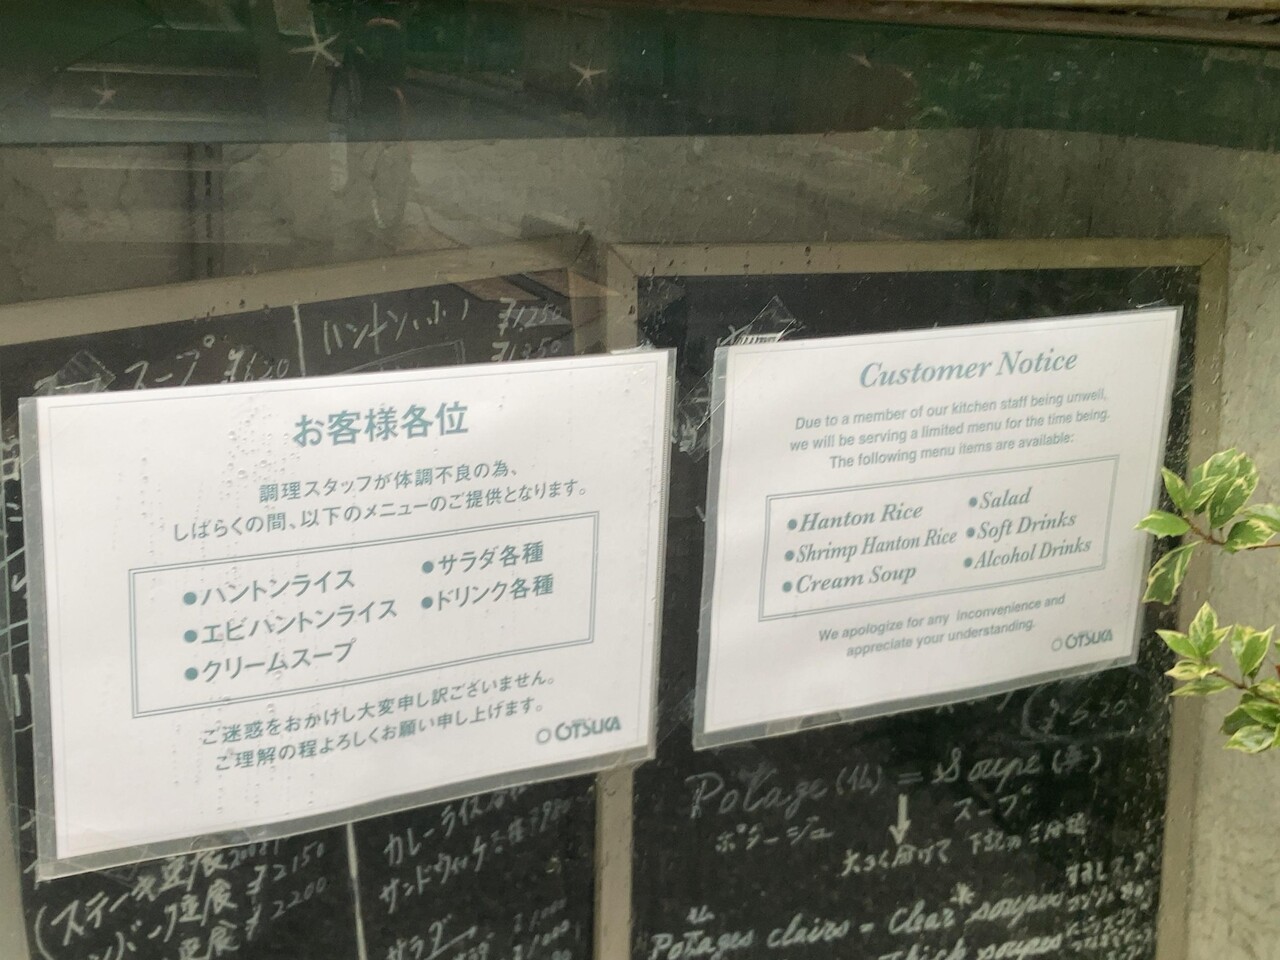 スープ ¥620
ハントン(小) ¥1,250
¥1,350
お客様各位
調理スタッフが体調不良の為、
しばらくの間、以下のメニューのご提供となります。
●ハントンライス
●エビハントンライス
●クリームスープ
●サラダ各種
●ドリンク各種
ご迷惑をおかけし大変申し訳ございません。
ご理解の程よろしくお願い申し上げます。
OTSUKA
Customer Notice
Due to a member of our kitchen staff being unwell,
we will be serving a limited menu for the time being.
The following menu items are available:
●Hanton Rice
●Shrimp Hanton Rice
●Cream Soup
●Salad
●Soft Drinks
●Alcohol Drinks
We apologize for any inconvenience and
appreciate your understanding.
OTSUKA
ステーキ定食 ¥2150
定食 ¥2200
カレーライス
サンドウィッチ
サラダ
Potage (仏) = Soupe
ポタージュ スープ
大きく分けて 下記の
Potages clairs = Clear soupes
Thick soupes